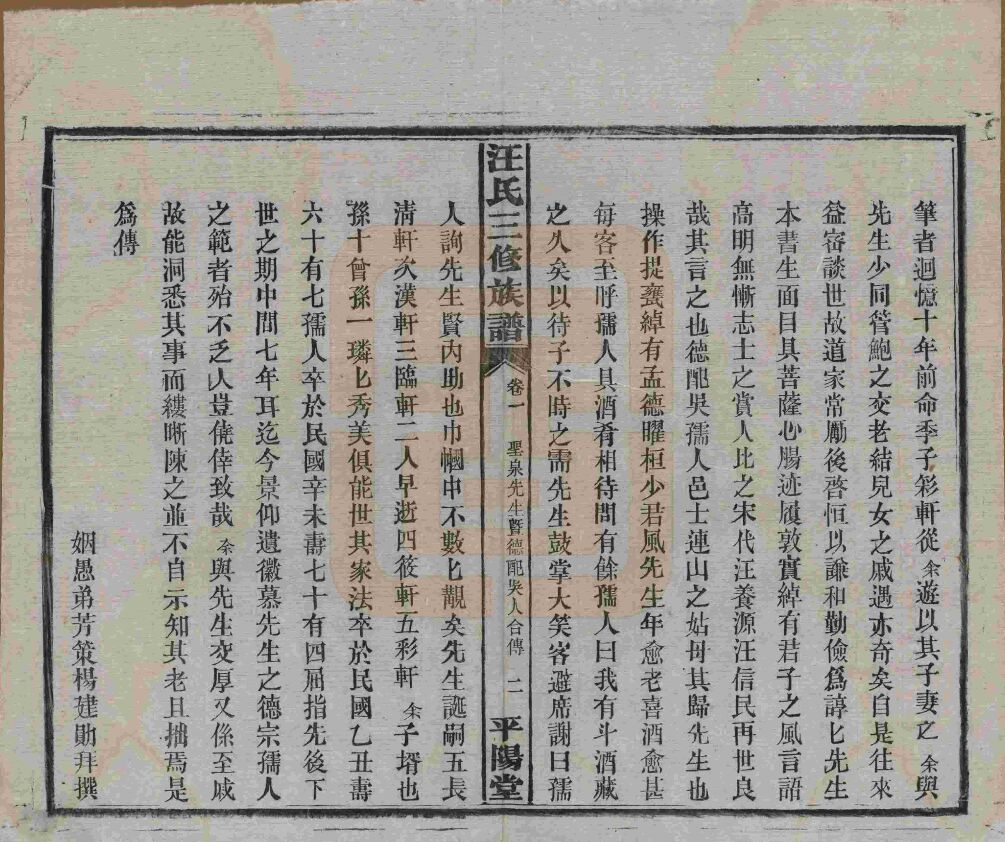 筆者迴憶十年前命季子彩軒從余遊以其子妻之余與
先生少同管鮑之交老結兒女之戚遇亦奇矣自是往來
益密談世故道家常勵後啓恒以謙和勤儉爲諄匕先生
本書生面目具菩薩心腸迹履敦實綽有君子之風言語
高明無慚志士之賞人比之宋代汪養源汪信民再世良
哉其言之也德配吳孺人邑士連山之姑母其歸先生也
操作提甕綽有孟德曜桓少君風先生年愈老喜酒愈甚
每客至呼孺人具酒肴相待間有餘孺人曰我有斗酒藏
之久矣以待子不時之需先生鼓掌大笑客避席謝曰孺
汪氏三修族譜
卷一
聖泉先生暨德配吳人合傳
二
平陽堂
人詢先生賢內助也巾幗中不數匕覯矣先生誕嗣五長
淸軒次漢軒三臨軒二人早逝四筱軒五彩軒余子壻也
孫十曾孫一璘匕秀美俱能世其家法卒於民國乙丑壽
六十有七孺人卒於民國辛未壽七十有四屈指先後下
世之期中間七年耳迄今景仰遺徽慕先生之德宗孺人
之範者殆不乏人豈僥倖致哉余與先生交厚又係至戚
故能洞悉其事而縷晰陳之並不自示知其老且拙焉是
爲傳
姻愚弟芳策楊建勛拜撰